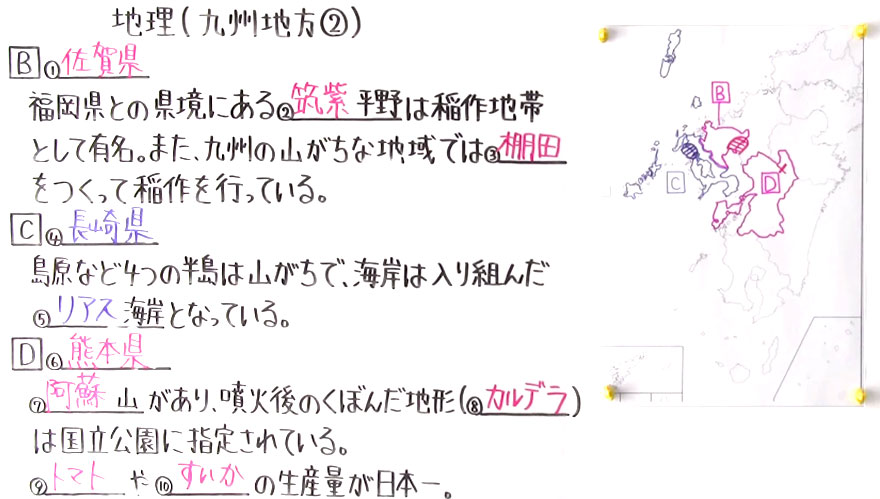 地理(九州地方②)
B ①佐賀県
福岡県との県境にある②筑紫平野は稲作地帯
として有名。また、九州の山がちな地域では③棚田
をつくって稲作を行っている。
C ④長崎県
島原など4つの半島は山がちで、海岸は入り組んだ
⑤リアス海岸となっている。
D ⑥熊本県
⑦阿蘇山があり、噴火後のくぼんだ地形(⑧カルデラ)
は国立公園に指定されている。
⑨トマトや⑩すいかの生産量が日本一。
B
C
D